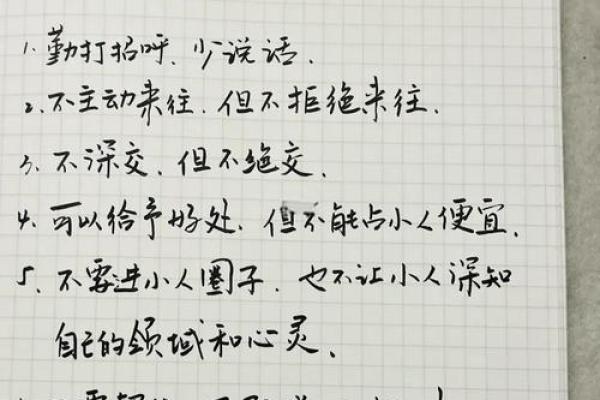 1. 勤打招呼，少说话．
2. 不主动来往．但不拒绝来往．
3. 不深交，但不绝交．
4. 可以给予好处，但不能占小人便宜．
5、不要进小人圈子，也不让小人深知
自己的领域和心灵．